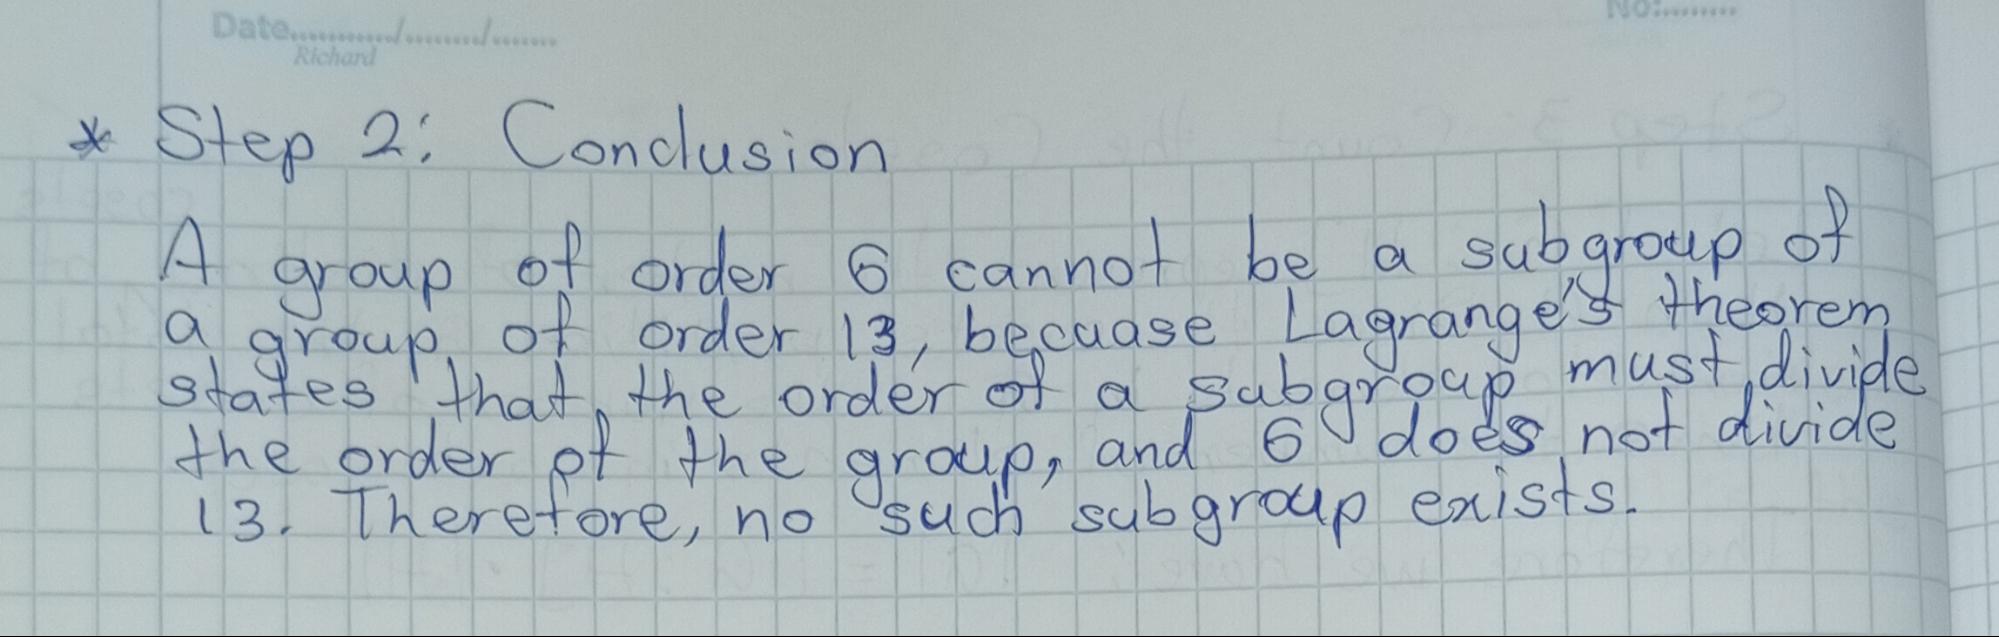 Date.........../........./.......
No:.........
Richard
* Step 2: Conclusion
A group of order 6 cannot be a subgroup of
a group of order 13, becuase Lagrange's theorem
states that the order of a subgroup must divide
the order of the group, and 6 does not divide
13. Therefore, no such subgroup exists.